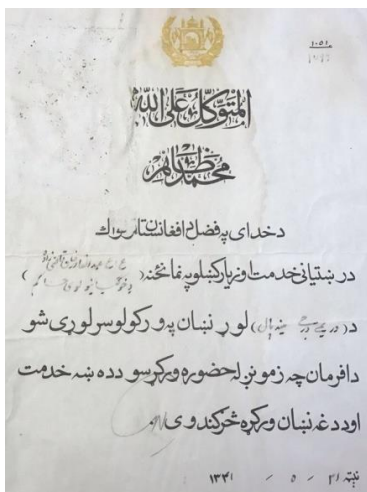 ۱۰۵۱
المتوکل علی الله
محمد ظاهر
د خدای پر فضل د افغانستان ټولواک
د رښتیانی خدمت او زیار کښلو په نمانځنه
د (دریمی درجی مینه پال) لوړ نښان په ورکولو سرلوړی شو
دا فرمان چه زمونږ له حضوره ورکړ سو د ده ښه خدمت
او د دغه نښان ورکړه څرګندوی
نېټه ۲۱ - ۵ - ۱۳۴۱